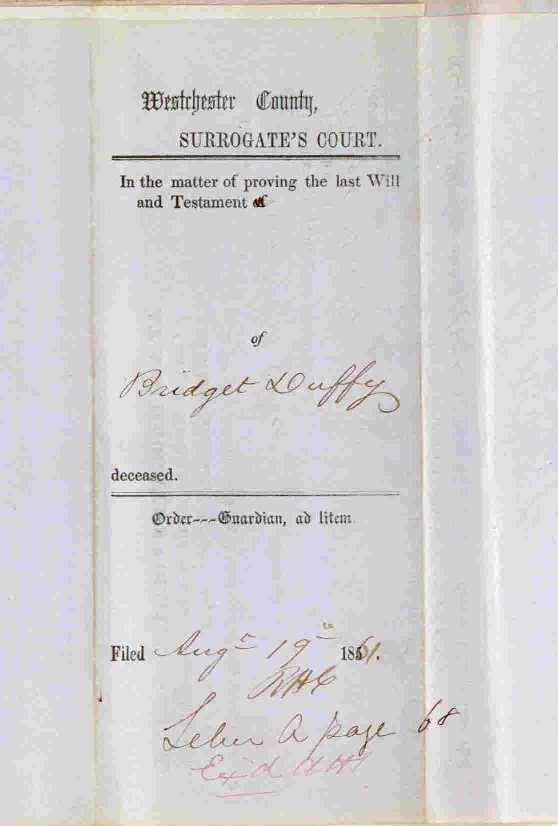 Westchester County,
SURROGATE'S COURT.
In the matter of proving the last Will
and Testament of
of
Bridget Duffy
deceased.
Order---Guardian, ad litem
Filed Augt 19th 1861.
Liber A page 68
Ex'd